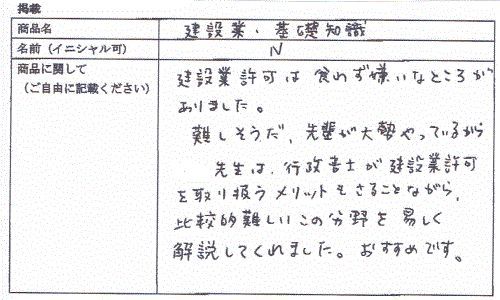 掲載
商品名 建設業・基礎知識
名前（イニシャル可） N
商品に関して
（ご自由に記載ください）
建設業許可は食わず嫌いなところが
ありました。
難しそうだ、先輩が大勢やっているから
先生は、行政書士が建設業許可
を取り扱うメリットもさることながら、
比較的難しいこの分野を易しく
解説してくれました。おすすめです。